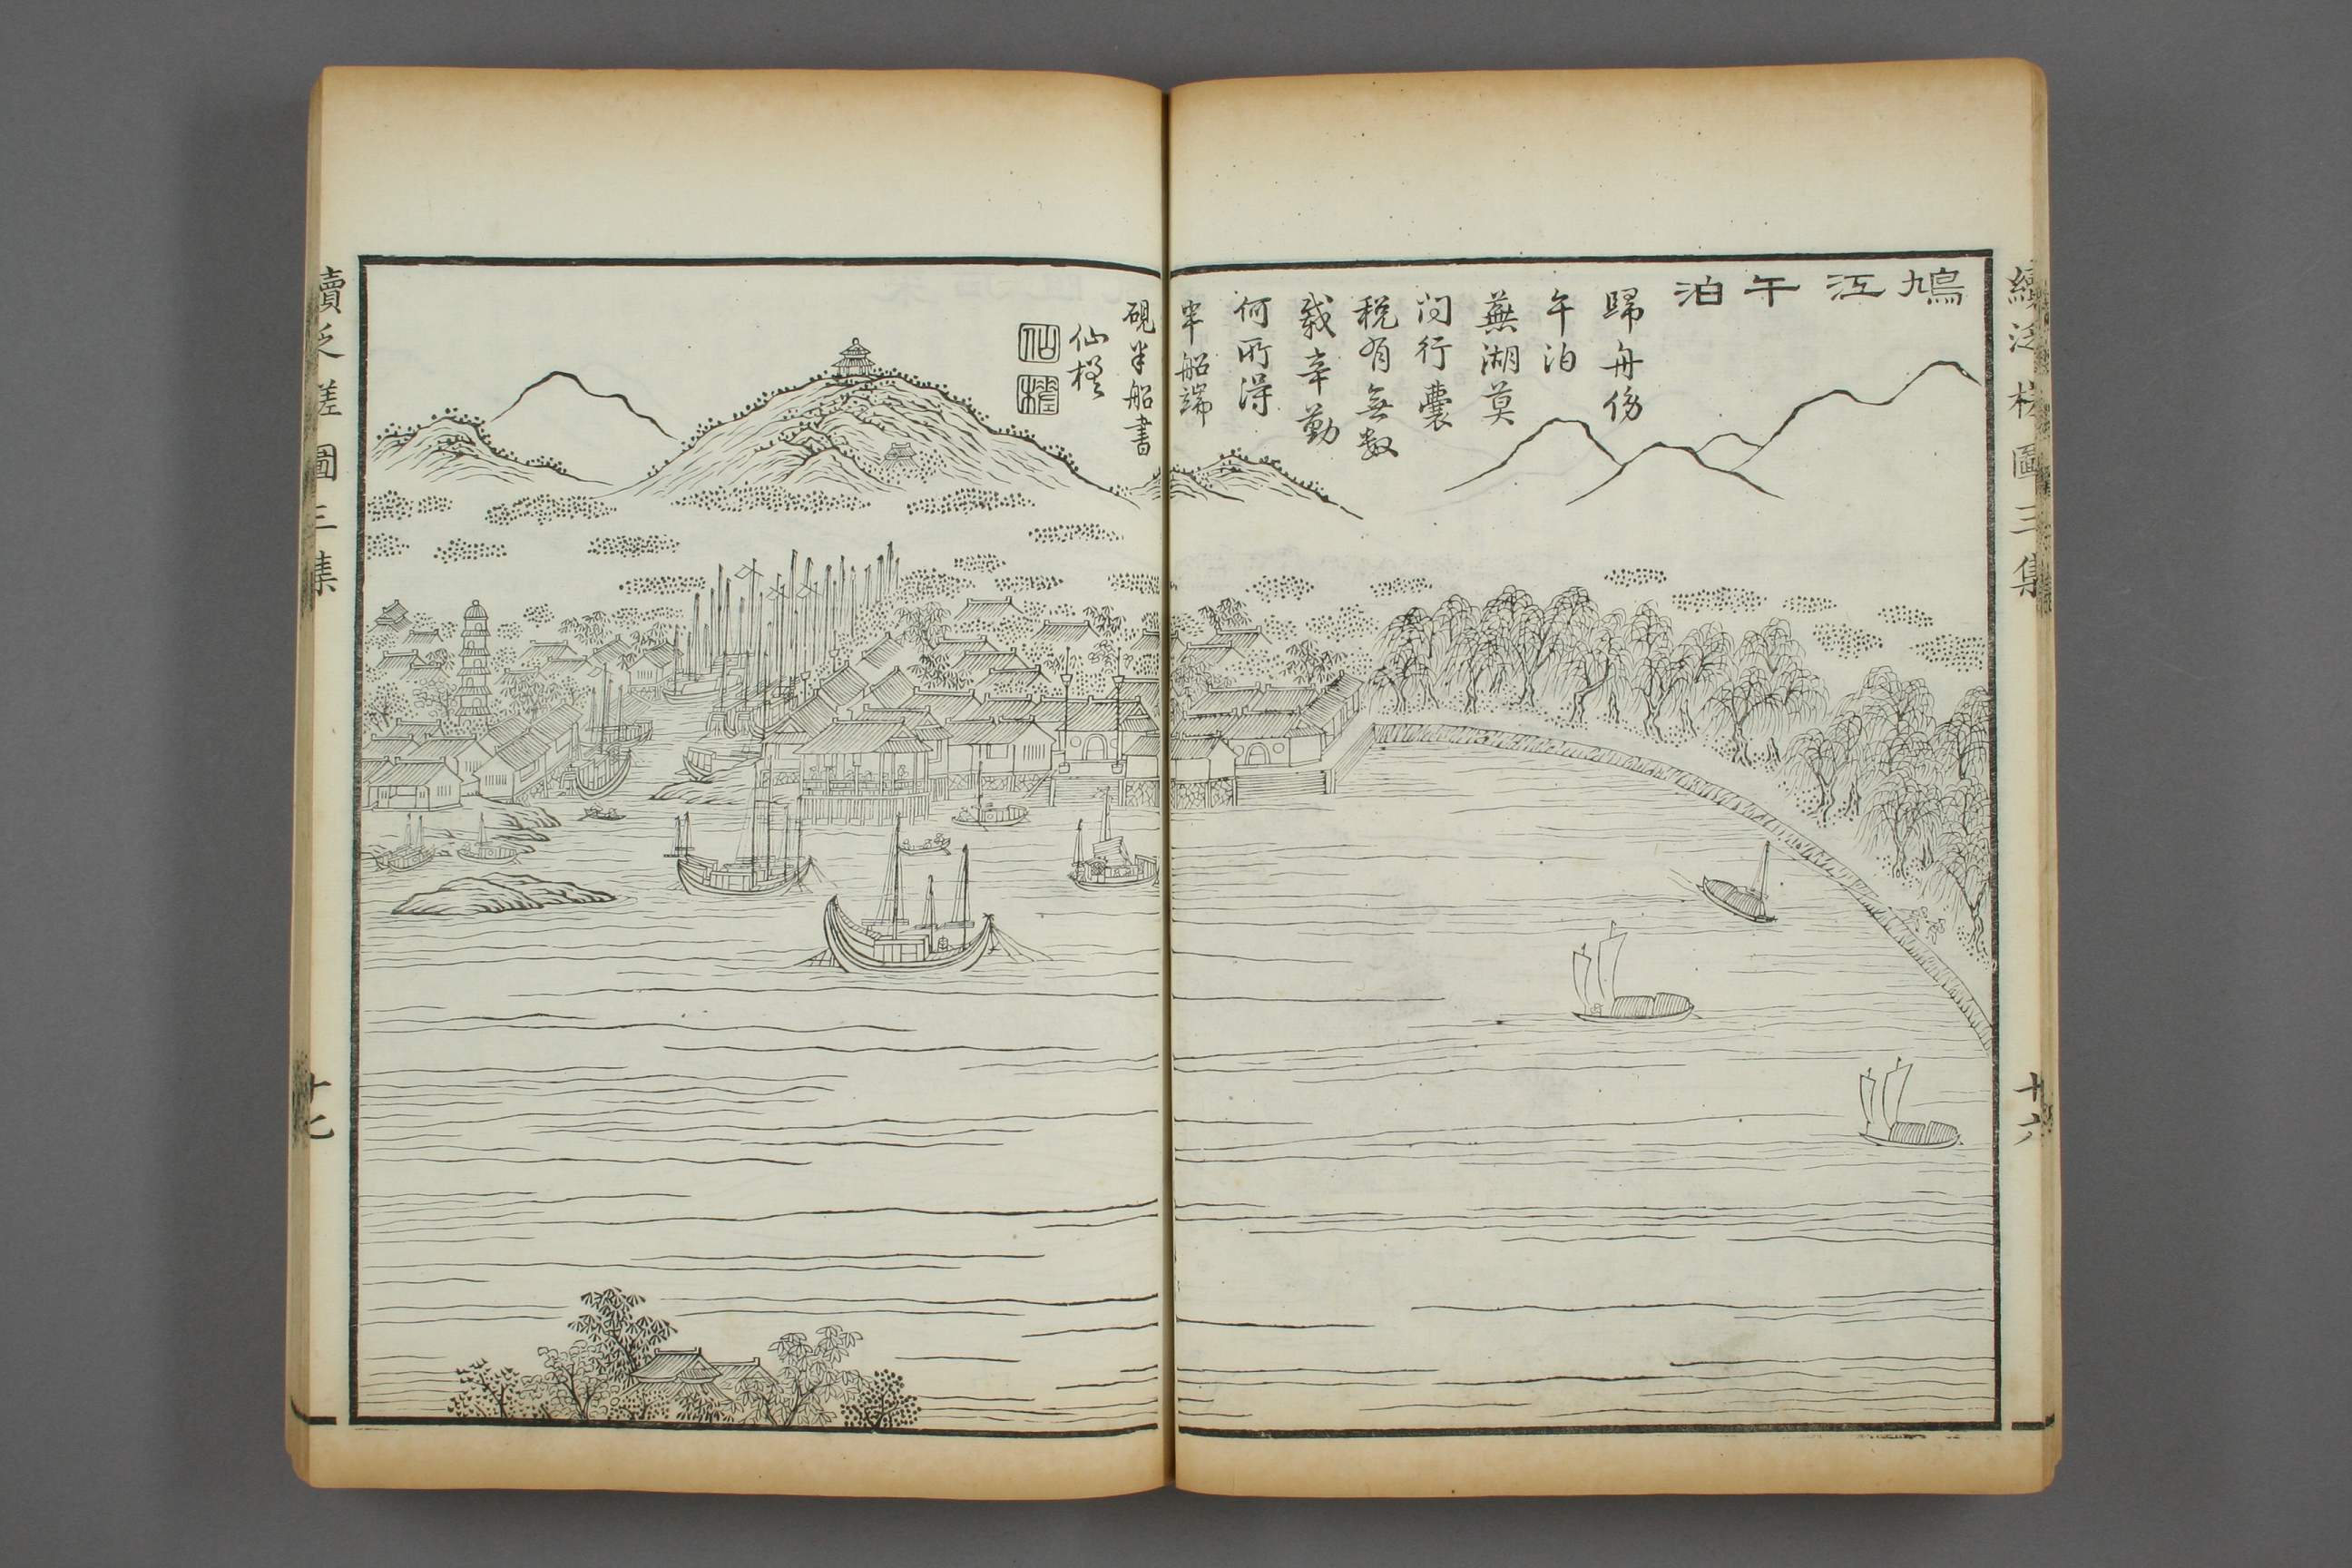 續泛槎圖三集
十六
鳩江午泊
歸舟傍
午泊
蕪湖莫
問行囊
税有無数
載辛勤
何所得
半船端
硯半船書
仙槎
仙
槎
續泛槎圖三集
十七